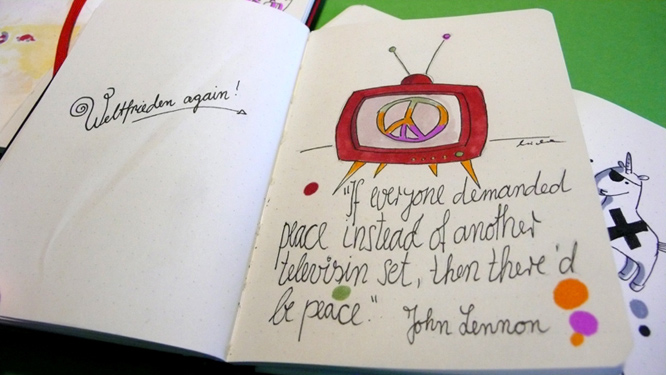 Weltfrieden again!
"If everyone demanded
peace instead of another
televisin set, then there'd
be peace."
John Lennon